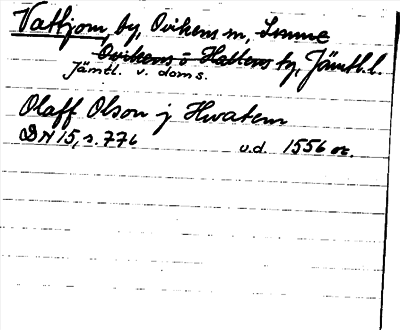 Vattjom, by, Ovikens sn, Sunne
Ovikens o Hallens tg, Jämtl. l.
Jämtl. v. doms.
Olaff Olson j Hwatem
DN 15, s. 776 u.d. 1556 or.